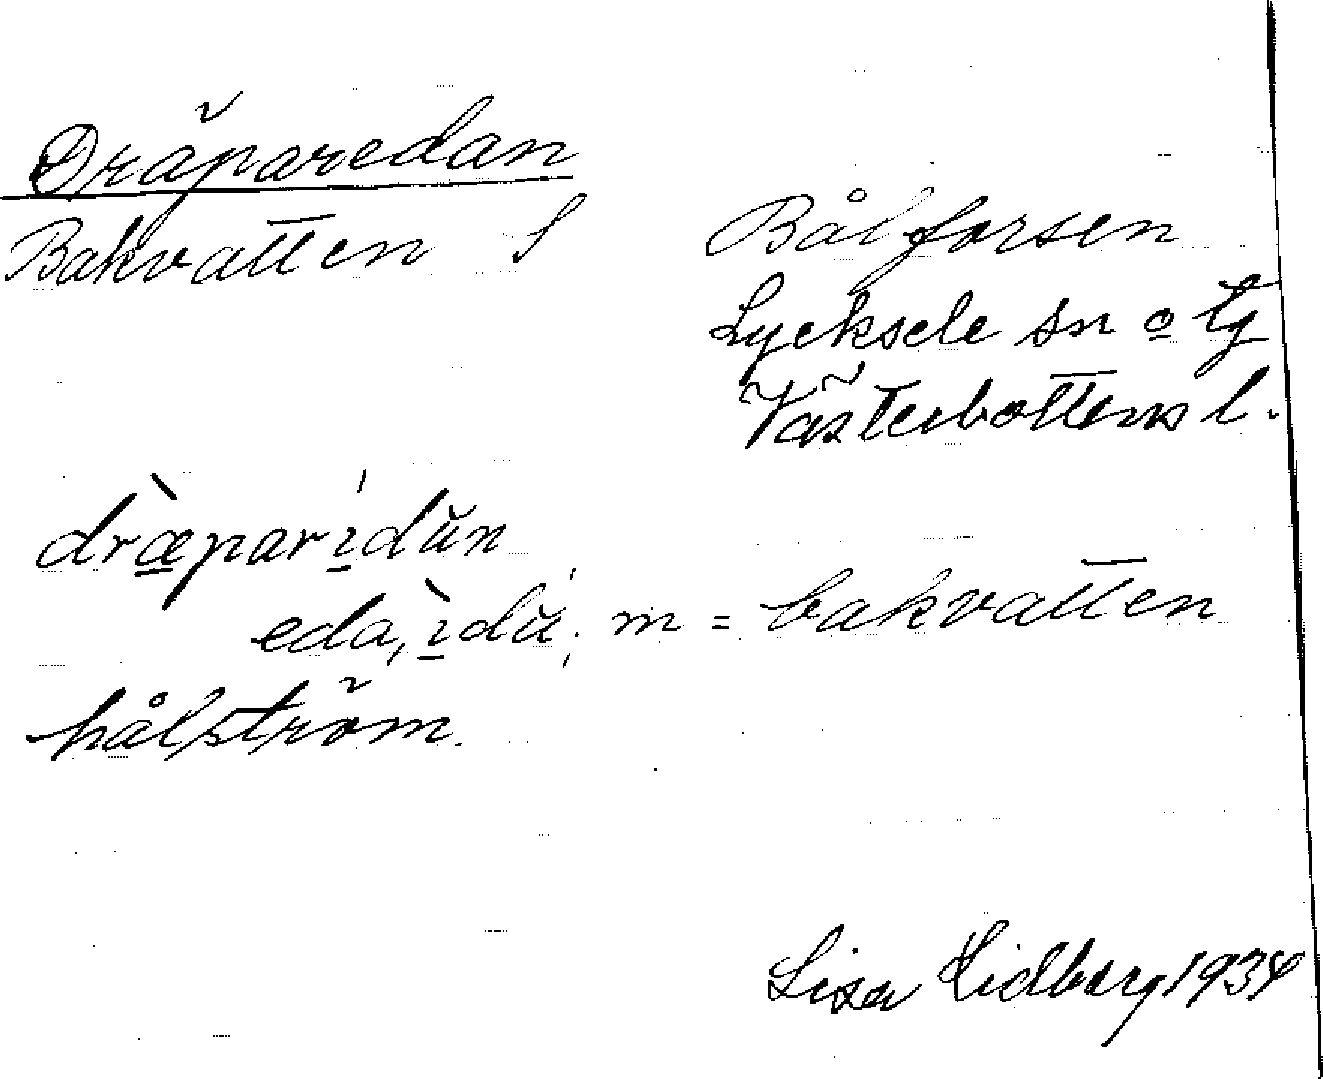 Dräparedan
Bakvatten i
Bålforsen
Lycksele sn o tg
Västerbottens l.
dræ̀parıdŭn
eda, ı̀dŭ, m = bakvatten
hålström.
Lisa Lidberg 1934